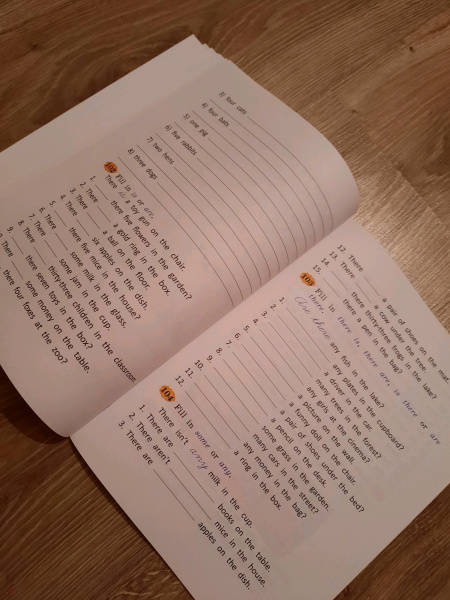 3) four cats
4) four bats
5) one pig
6) five rabbits
7) two hens
8) three dogs
102 Fill in is or are.
1. There is a toy gun on the chair.
there five flowers in the garden?
There a gold ring in the box.
There six apples on the dish.
There a ball on the floor.
there five mice in the house?
There some milk in the glass.
There some jam in the cup.
There thirty-three children in the classroom.
there seven toys in the box?
There some money on the table.
there four foxes at the zoo?
12. There a pair of shoes on the mat.
13. There a cow under the tree.
14. there thirty-three frogs in the lake?
15. there a pen in the bag?
103 Fill in there is, there are, is there or are there.
1. Are there any fish in the lake?
2. any plates in the cupboard?
3. a driver in the car.
4. many trees in the forest?
5. any girls in the cinema?
6. a picture on the wall.
7. a funny doll on the chair.
8. a pair of shoes under the bed?
9. a pencil on the desk.
10. some grass in the garden.
11. many cars in the street?
12. any money in the bag?
12. a ring in the box.
104 Fill in some or any.
1. There isn't any milk in the cup.
2. There are books on the table.
There aren't mice in the house.
3. There are apples on the dish.